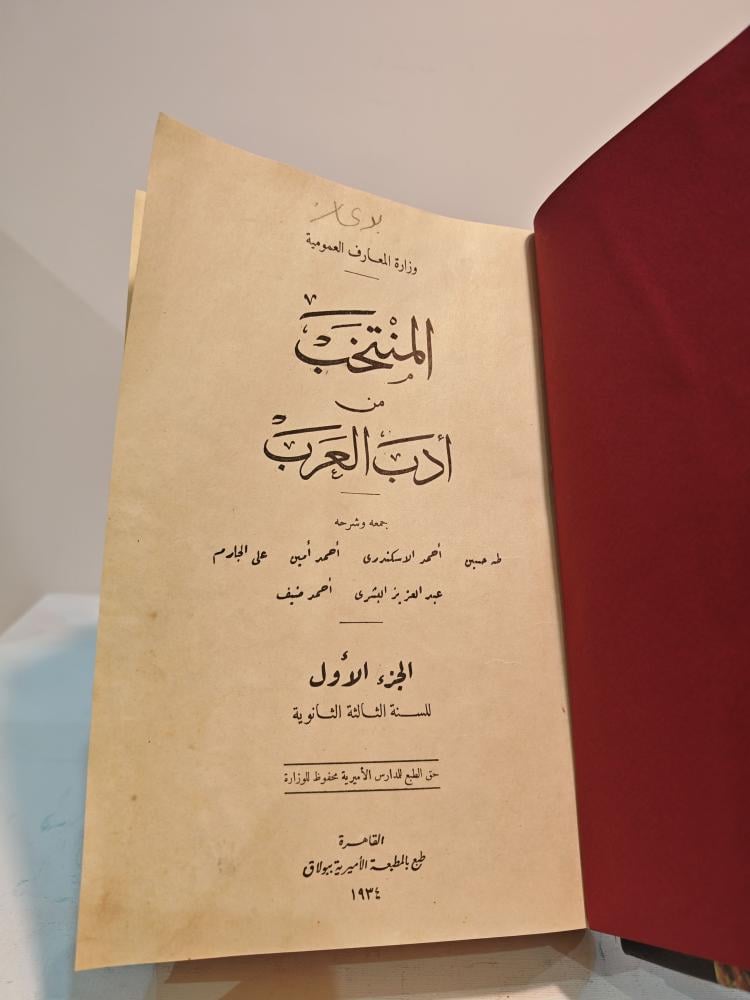 وزارة المعارف العمومية
المنتخب
من
أدب العرب
جمعه وشرحه
طه حسين أحمد الاسكندرى أحمد أمين على الجارم
عبد العزيز البشرى أحمد ضيف
الجزء الأول
للسنة الثالثة الثانوية
حق الطبع للدارس الأميرية محفوظ للوزارة
القاهرة
طبع بالمطبعة الأميرية ببولاق
١٩٣٤